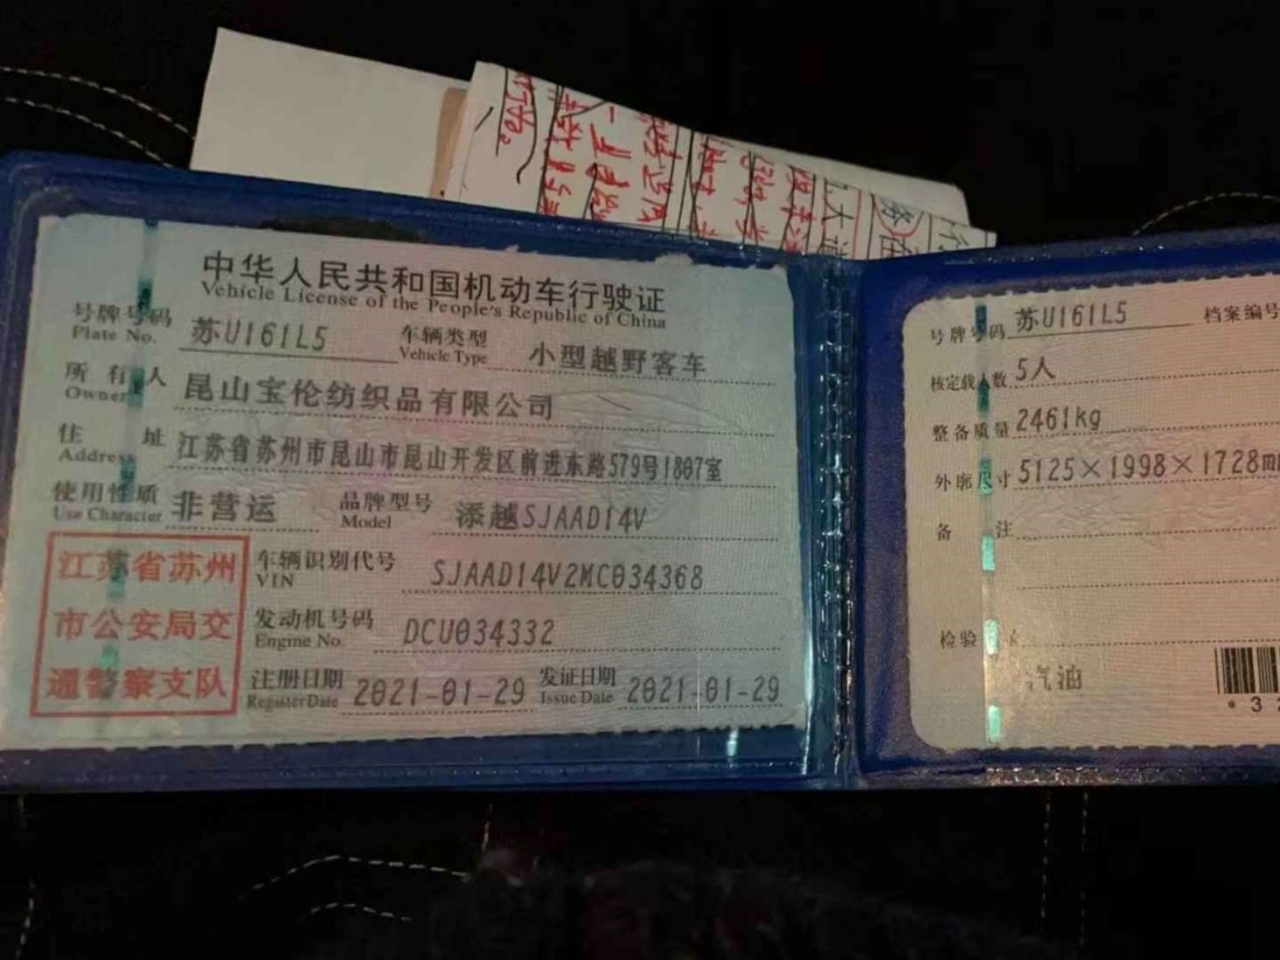 中华人民共和国机动车行驶证
Vehicle License of the People's Republic of China
号牌号码 苏U161L5 车辆类型 小型越野客车
Plate No. Vehicle Type
所有人 昆山宝伦纺织品有限公司
Owner
住址 江苏省苏州市昆山市昆山开发区前进东路579号1807室
Address
使用性质 非营运 品牌型号 添越SJAAD14V
Use Character Model
江苏省苏州
市公安局交
通警察支队
车辆识别代号 SJAAD14V2MC034368
VIN
发动机号码 DCU034332
Engine No.
注册日期 2021-01-29 发证日期 2021-01-29
Register Date Issue Date
号牌号码 苏U161L5 档案编号
核定载人数 5人
整备质量 2461kg
外廓尺寸 5125×1998×1728m
备注
检验
汽油